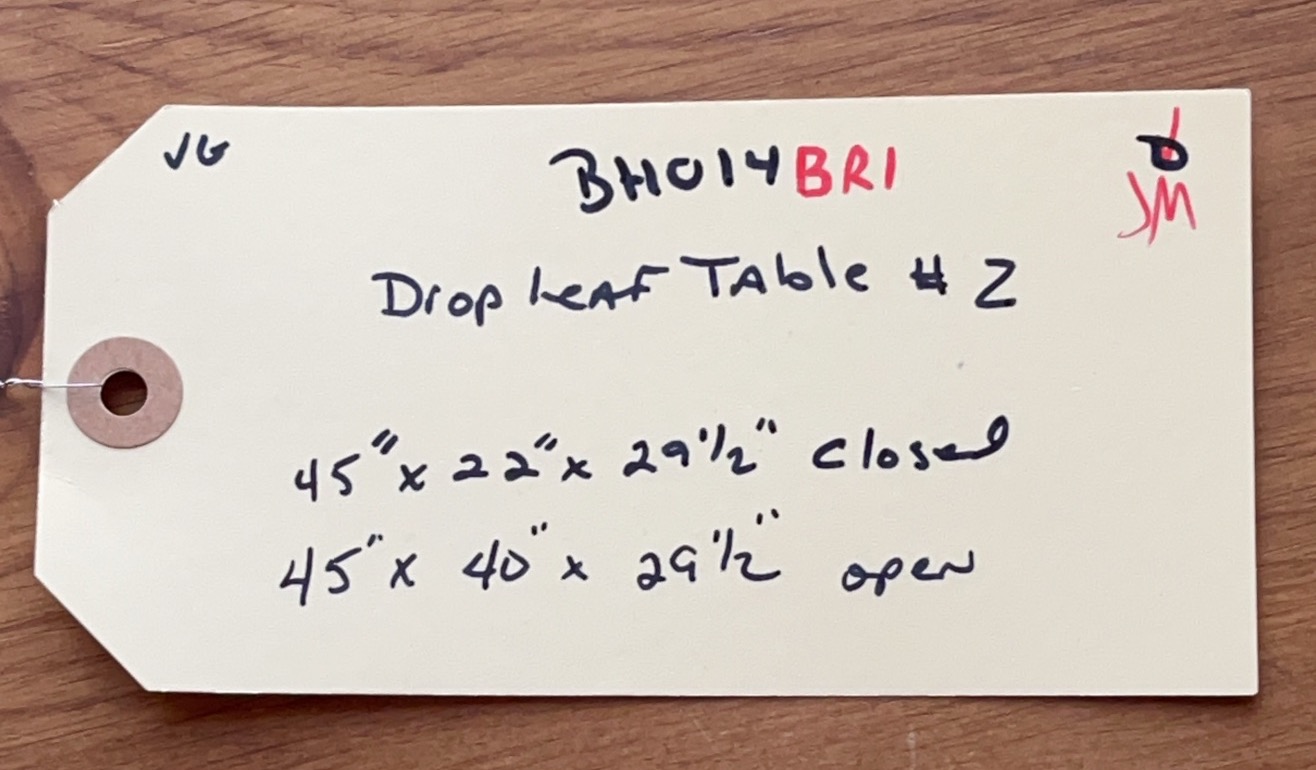 VG
BH014BR1
JM
Drop Leaf Table # 2
45" x 22" x 29 1/2" closed
45" x 40" x 29 1/2" open